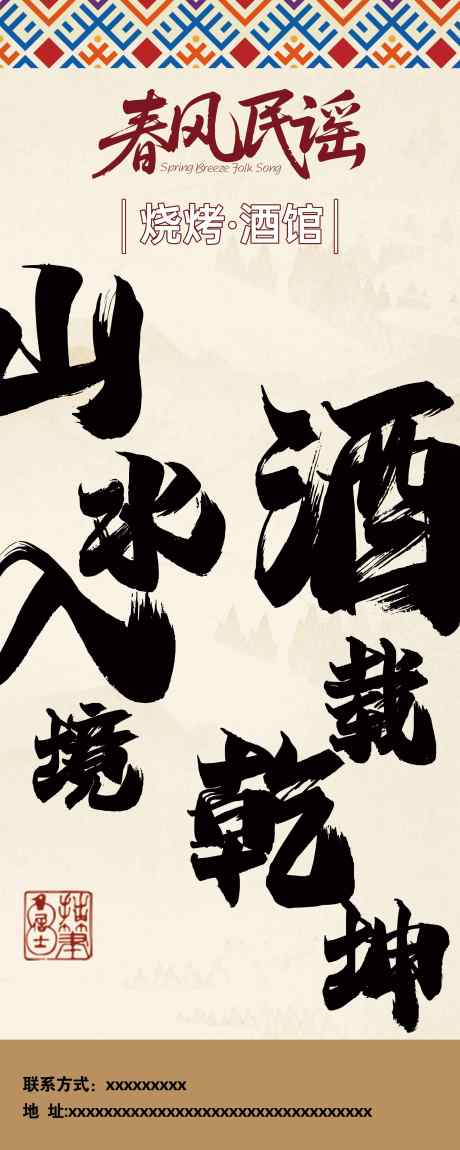 春风民谣
Spring Breeze Folk Song
烧烤·酒馆
山水入境
酒载乾坤
联系方式：xxxxxxxxx
地 址:xxxxxxxxxxxxxxxxxxxxxxxxxxxxxxxxxx